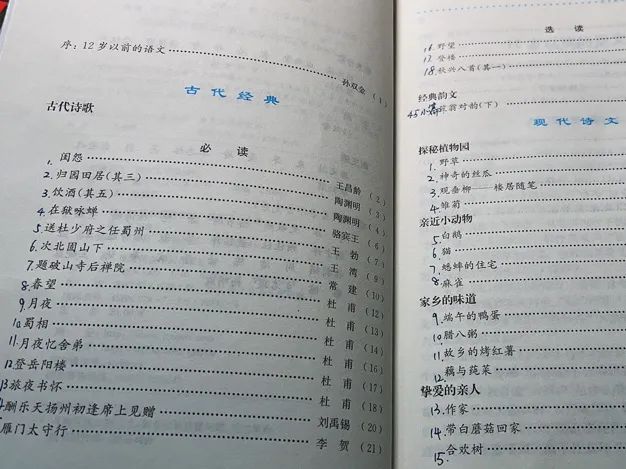 序：12岁以前的语文 孙双金 (1)
古代经典
古代诗歌
必读
1. 闺怨 王昌龄 (2)
2. 归园田居(其三) 陶渊明 (3)
3. 饮酒(其五) 陶渊明 (4)
4. 在狱咏蝉 骆宾王 (6)
5 送杜少府之任蜀州 王勃 (7)
6. 次北固山下 王湾 (9)
7. 题破山寺后禅院 常建 (10)
8. 春望 杜甫 (12)
9. 月夜 杜甫 (13)
10. 蜀相 杜甫 (14)
11. 月夜忆舍弟 杜甫 (16)
12 登岳阳楼 杜甫 (17)
13 旅夜书怀 杜甫 (18)
酬乐天扬州初逢席上见赠 刘禹锡 (20)
雁门太守行 李贺 (21)
选读
16. 野望
17. 登楼
18. 秋兴八首(其一)
经典韵文
翁对韵(下)
现代诗文
探秘植物园
1. 野草
2. 神奇的丝瓜
3. 观垂柳——楼居随笔
4. 雏菊
亲近小动物
5. 白鹅
6. 猫
7. 蟋蟀的住宅
8. 麻雀
家乡的味道
9. 端午的鸭蛋
10. 腊八粥
11. 故乡的烤红薯
12. 藕与莼菜
挚爱的亲人
13. 作家
14. 带白蘑菇回家
15. 合欢树